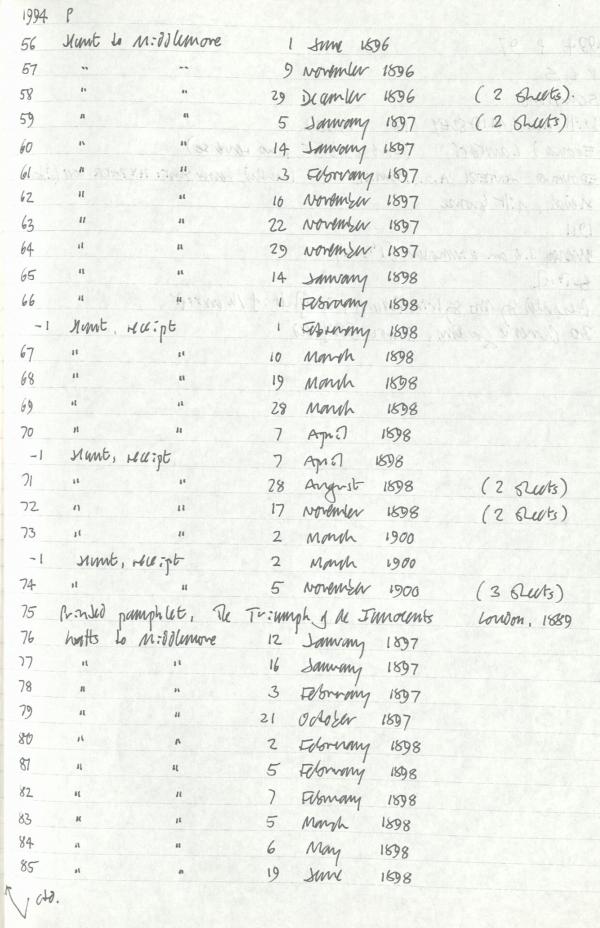 1994 P
56 Hunt to Middlemore 1 June 1896
57 " " 9 November 1896
58 " " 29 December 1896 (2 sheets).
59 " " 5 January 1897 (2 sheets)
60 " " 14 January 1897
61 " " 3 February 1897
62 " " 10 November 1897
63 " " 22 November 1897
64 " " 29 November 1897
65 " " 14 January 1898
66 " " 1 February 1898
-1 Hunt, receipt 1 February 1898
67 " " 10 March 1898
68 " " 19 March 1898
69 " " 28 March 1898
70 " " 7 April 1898
-1 Hunt, receipt 7 April 1898
71 " " 28 August 1898 (2 sheets)
72 " " 17 November 1898 (2 sheets)
73 " " 2 March 1900
-1 Hunt, receipt 2 March 1900
74 " " 5 November 1900 (3 sheets)
75 Printed pamphlet, The Triumph of the Innocents London, 1889
76 Watts to Middlemore 12 January 1897
77 " " 16 January 1897
78 " " 3 February 1897
79 " " 21 October 1897
80 " " 2 February 1898
81 " " 5 February 1898
82 " " 7 February 1898
83 " " 5 March 1898
84 " " 6 May 1898
85 " " 19 June 1898
ctd.